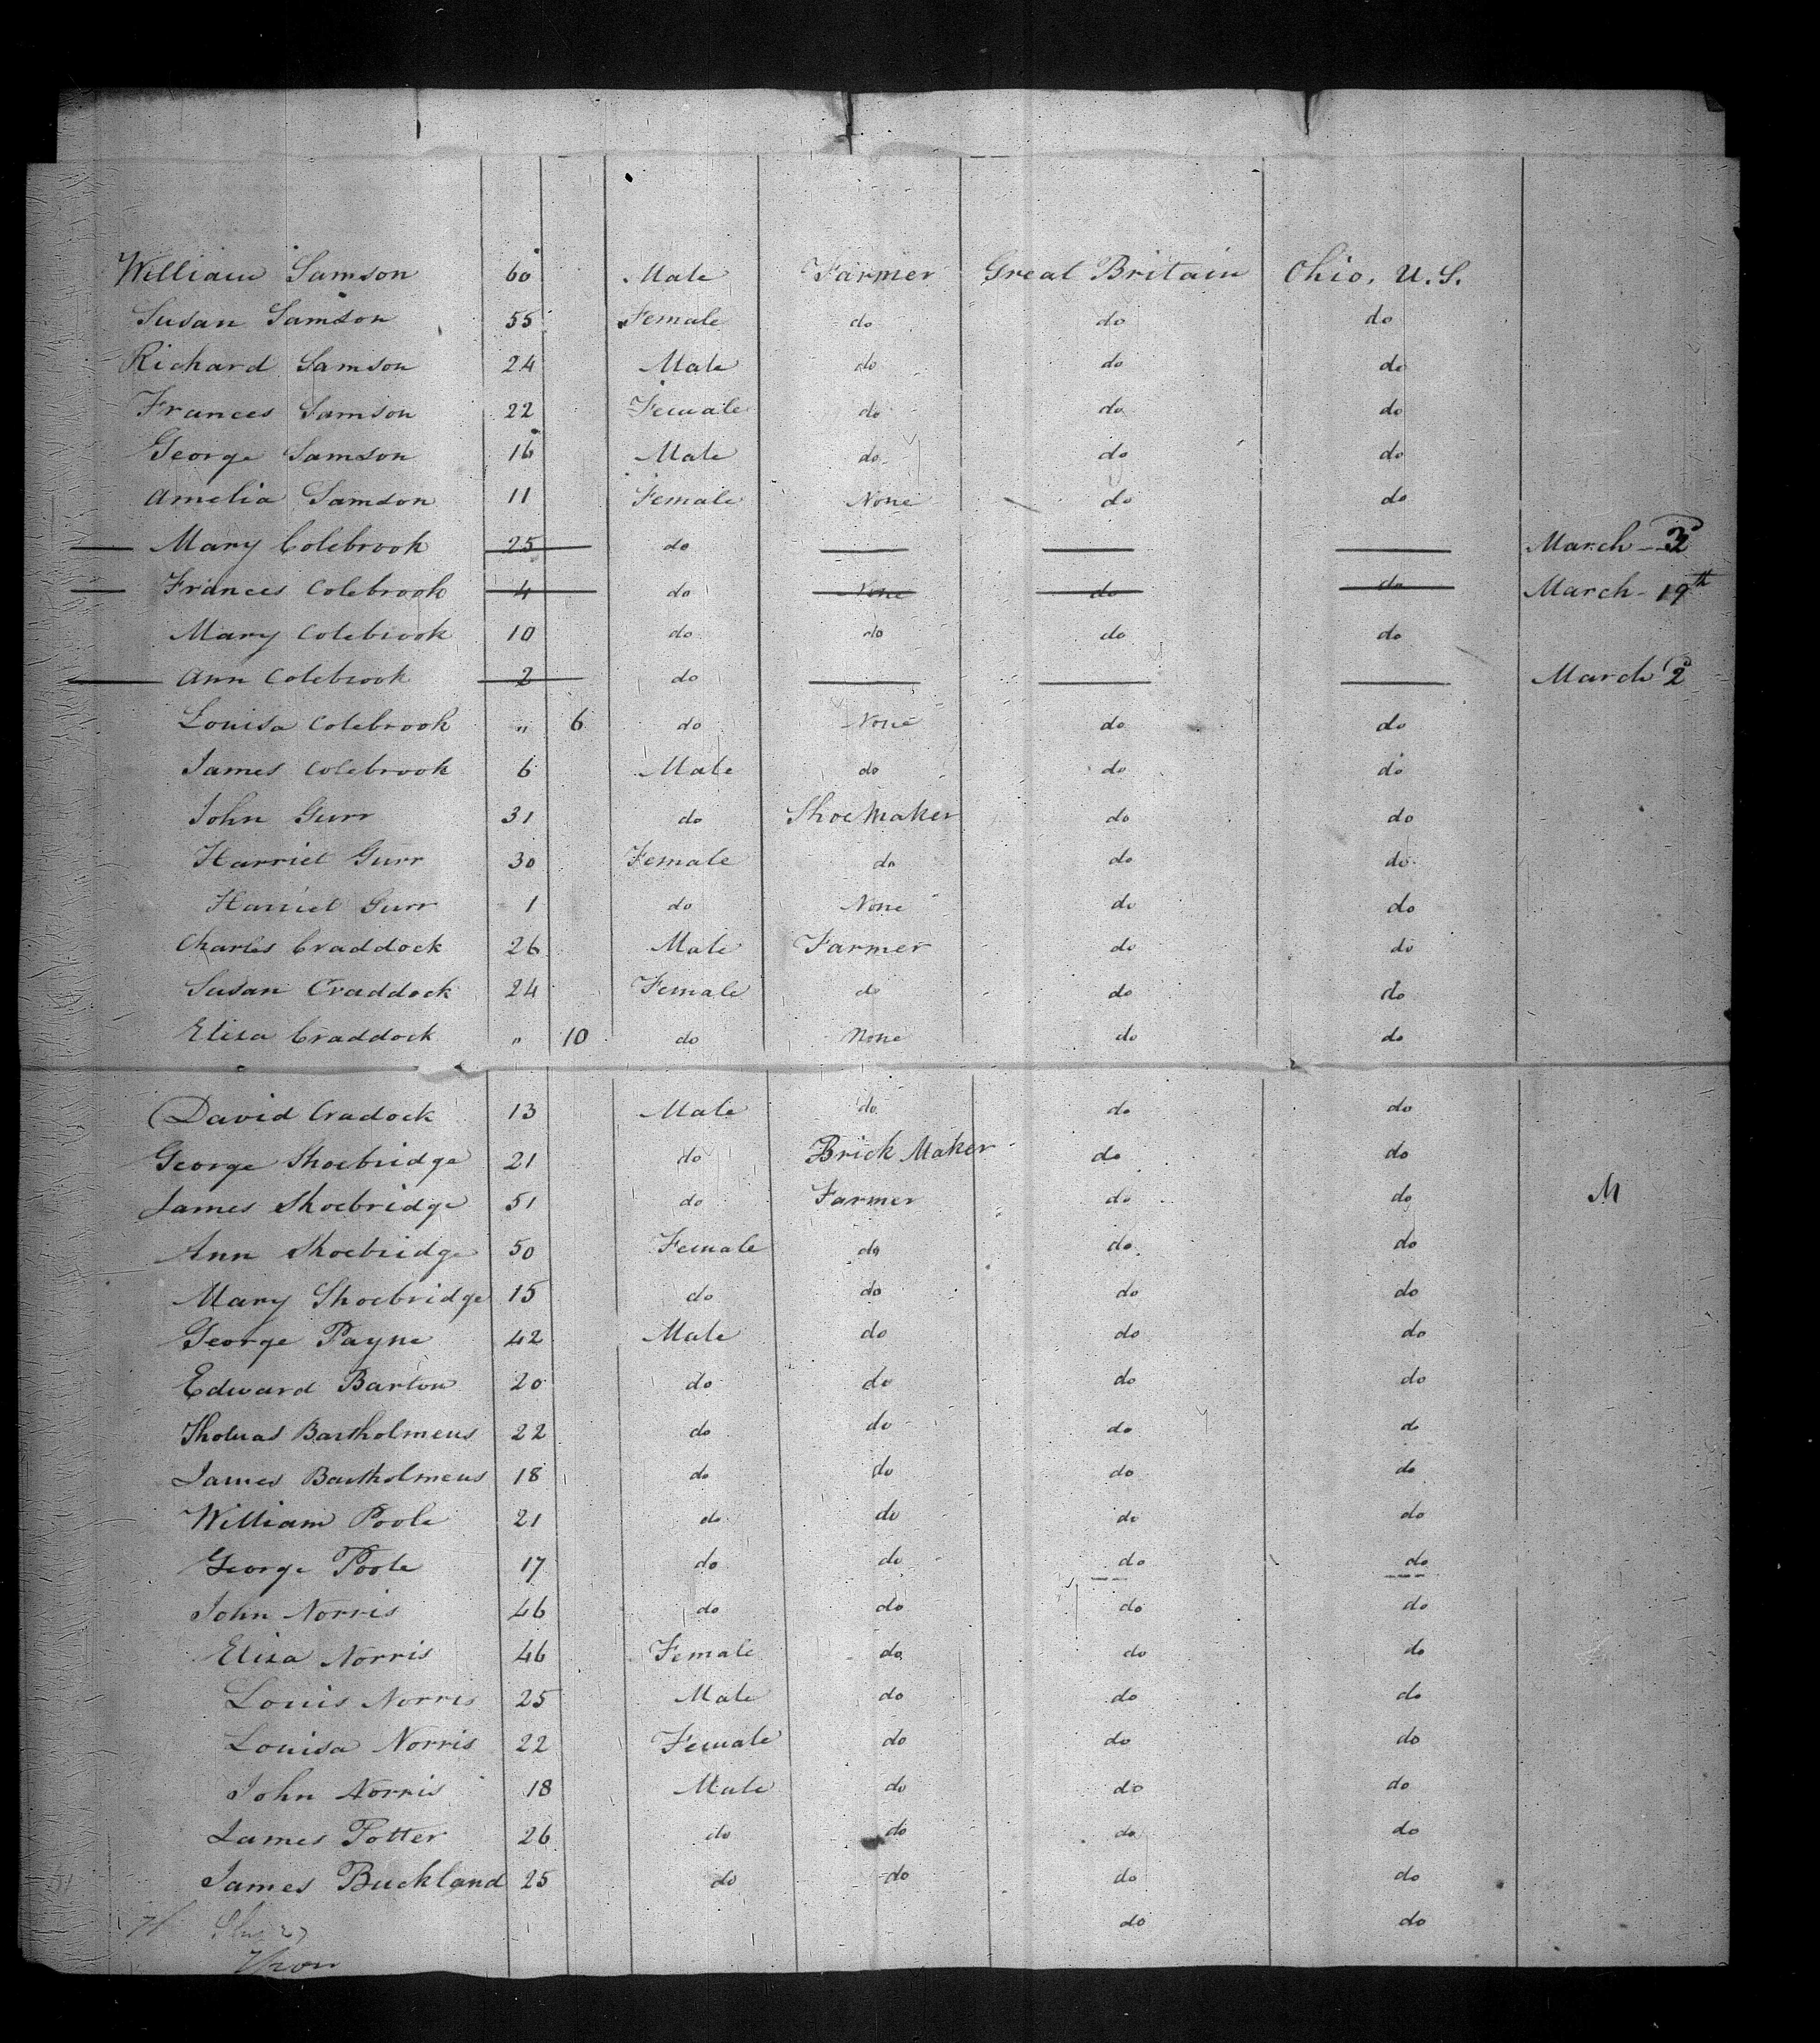 William Samson 60 Male Farmer Great Britain Ohio. U.S.
Susan Samson 55 Female do do do
Richard Samson 24 Male do do do
Frances Samson 22 Female do do do
George Samson 16 Male do do do
Amelia Samson 11 Female None do do
Mary Colebrook 25 do March
Frances Colebrook 4 do None do do March 19th
Mary Colebrook 10 do do do do
Ann Colebrook 2 do March 2d
Louisa Colebrook " 6 do None do do
James Colebrook 6 Male do do do
John Gurr 31 do Shoe Maker do do
Harriet Gurr 30 Female do do do
Harriet Gurr 1 do None do do
Charles Craddock 26 Male Farmer do do
Susan Craddock 24 Female do do do
Eliza Craddock " 10 do None do do
David Cradock 13 Male do do do
George Shoebridge 21 do Brick Maker do do
James Shoebridge 51 do Farmer do do M
Ann Shoebridge 50 Female do do do
Mary Shoebridge 15 do do do do
George Payne 42 Male do do do
Edward Barton 20 do do do do
Thomas Bartholmeus 22 do do do do
James Bartholmeus 18 do do do do
William Poole 21 do do do do
George Poole 17 do do do do
John Norris 46 do do do do
Eliza Norris 46 Female do do do
Louis Norris 25 Male do do do
Louisa Norris 22 Female do do do
John Norris 18 Male do do do
James Potter 26 do do do do
James Buckland 25 do do do do
do do